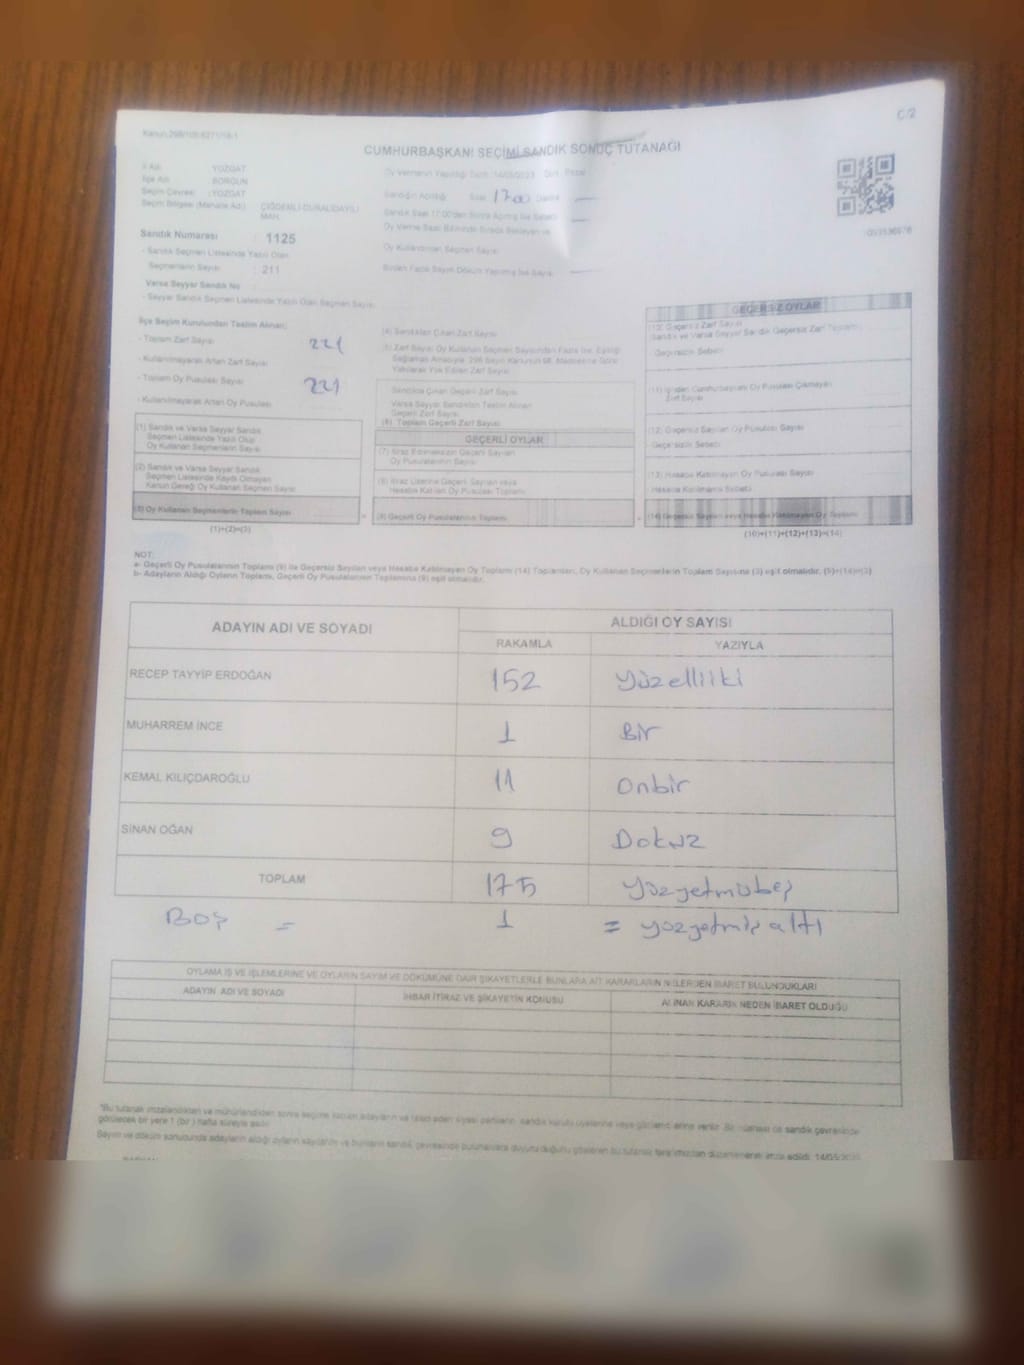 C/2
Kanun:298/105-6271/18-1
CUMHURBAŞKANI SEÇİMİ SANDIK SONUÇ TUTANAĞI
İl Adı : YOZGAT
İlçe Adı : SORGUN
Seçim Çevresi : YOZGAT
Seçim Bölgesi (Mahalle Adı) : ÇİĞDEMLİ-DURALIDAYILI MAH.
Oy Vermenin Yapıldığı Tarih: 14/05/2023 Gün: Pazar
Sandığın Açıldığı Saat: 17 00 Dakika
Sandık Saat 17:00'den Sonra Açılmış İse Sebebi
Oy Verme Saati Bitiminde Sırada Bekleyen ve
Oy Kullandırılan Seçmen Sayısı
Birden Fazla Sayım Döküm Yapılmış İse Sayısı
Sandık Numarası : 1125
- Sandık Seçmen Listesinde Yazılı Olan
Seçmenlerin Sayısı : 211
Varsa Seyyar Sandık No
- Seyyar Sandık Seçmen Listesinde Yazılı Olan Seçmen Sayısı:
İlçe Seçim Kurulundan Teslim Alınan;
- Toplam Zarf Sayısı 221
- Kullanılmayarak Artan Zarf Sayısı
- Toplam Oy Pusulası Sayısı 221
- Kullanılmayarak Artan Oy Pusulası
(1) Sandık ve Varsa Seyyar Sandık
Seçmen Listesinde Yazılı Olup
Oy Kullanan Seçmenlerin Sayısı
(2) Sandık ve Varsa Seyyar Sandık
Seçmen Listesinde Kayıtlı Olmayan
Kanun Gereği Oy Kullanan Seçmen Sayısı
(3) Oy Kullanan Seçmenlerin Toplam Sayısı
(1)+(2)=(3)
(4) Sandıktan Çıkan Zarf Sayısı
(5) Zarf Sayısı Oy Kullanan Seçmen Sayısından Fazla İse, Eşitliği
Sağlamak Amacıyla, 298 Sayılı Kanunun 98. Maddesine Göre
Yakılarak Yok Edilen Zarf Sayısı
Sandıkta Çıkan Geçerli Zarf Sayısı
Varsa Seyyar Sandıktan Teslim Alınan
Geçerli Zarf Sayısı
(6) Toplam Geçerli Zarf Sayısı
GEÇERLİ OYLAR
(7) İtiraz Edilmeksizin Geçerli Sayılan
Oy Pusulalarının Sayısı
(8) İtiraz Üzerine Geçerli Sayılan veya
Hesaba Katılan Oy Pusulası Toplamı
(9) Geçerli Oy Pusulalarının Toplamı
GEÇERSİZ OYLAR
(10) Geçersiz Zarf Sayısı
(Sandık ve Varsa Seyyar Sandık Geçersiz Zarf Toplamı)
Geçersizlik Sebebi
(11) İçinden Cumhurbaşkanı Oy Pusulası Çıkmayan
Zarf Sayısı
(12) Geçersiz Sayılan Oy Pusulası Sayısı
Geçersizlik Sebebi
(13) Hesaba Katılmayan Oy Pusulası Sayısı
Hesaba Katılmama Sebebi
(14) Geçersiz Sayılan veya Hesaba Katılmayan Oy Toplamı
(10)+(11)+(12)+(13)=(14)
NOT:
a- Geçerli Oy Pusulalarının Toplamı (9) ile Geçersiz Sayılan veya Hesaba Katılmayan Oy Toplamı (14) Toplamları, Oy Kullanan Seçmenlerin Toplam Sayısına (3) eşit olmalıdır. (9)+(14)=(3)
b- Adayların Aldığı Oyların Toplamı, Geçerli Oy Pusulalarının Toplamına (9) eşit olmalıdır.
ADAYIN ADI VE SOYADI ALDIĞI OY SAYISI
RAKAMLA YAZIYLA
RECEP TAYYİP ERDOĞAN 152 Yüzelliiki
MUHARREM İNCE 1 Bir
KEMAL KILIÇDAROĞLU 11 Onbir
SİNAN OĞAN 9 Dokuz
TOPLAM 175 Yüzyetmişbeş
BOŞ = 1 = yüzyetmiş altı
OYLAMA İŞ VE İŞLEMLERİNE VE OYLARIN SAYIM VE DÖKÜMÜNE DAİR ŞİKAYETLERLE BUNLARA AİT KARARLARIN NELERDEN İBARET BULUNDUKLARI
ADAYIN ADI VE SOYADI İHBAR İTİRAZ VE ŞİKAYETİN KONUSU ALINAN KARARIN NEDEN İBARET OLDUĞU